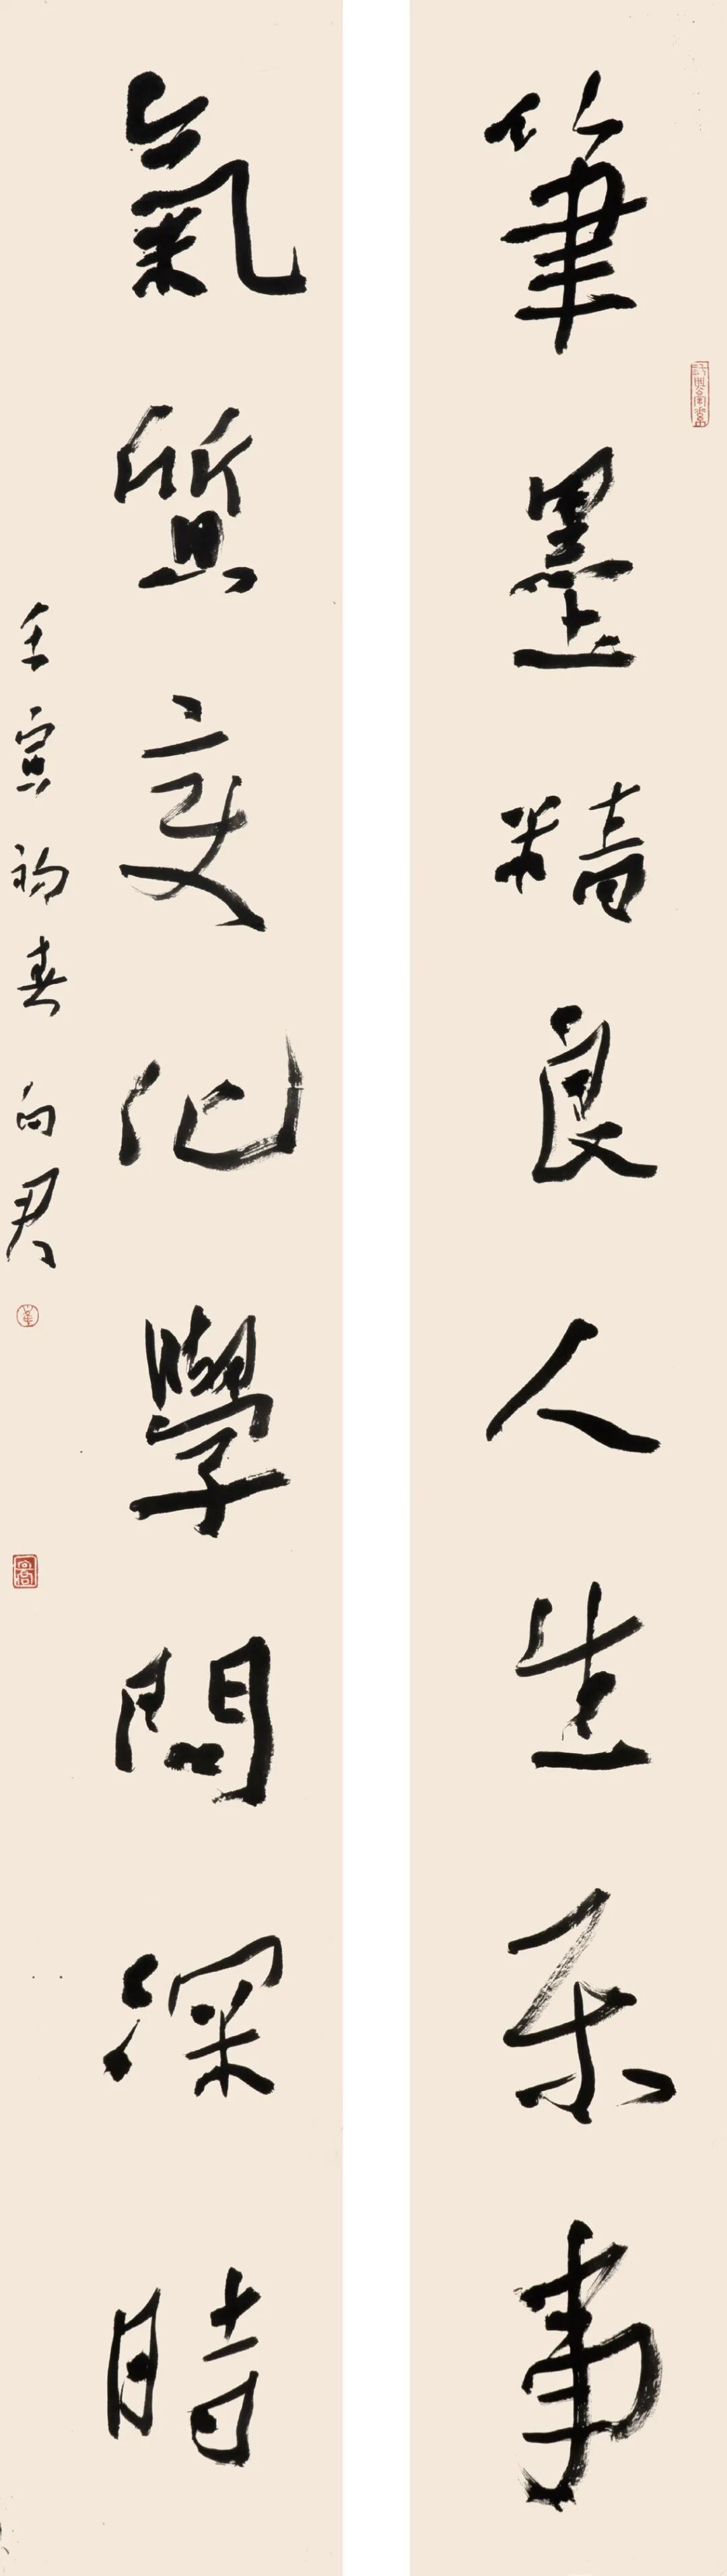 筆墨精良人生乐事
氣質变化學問深時
壬寅初春向君